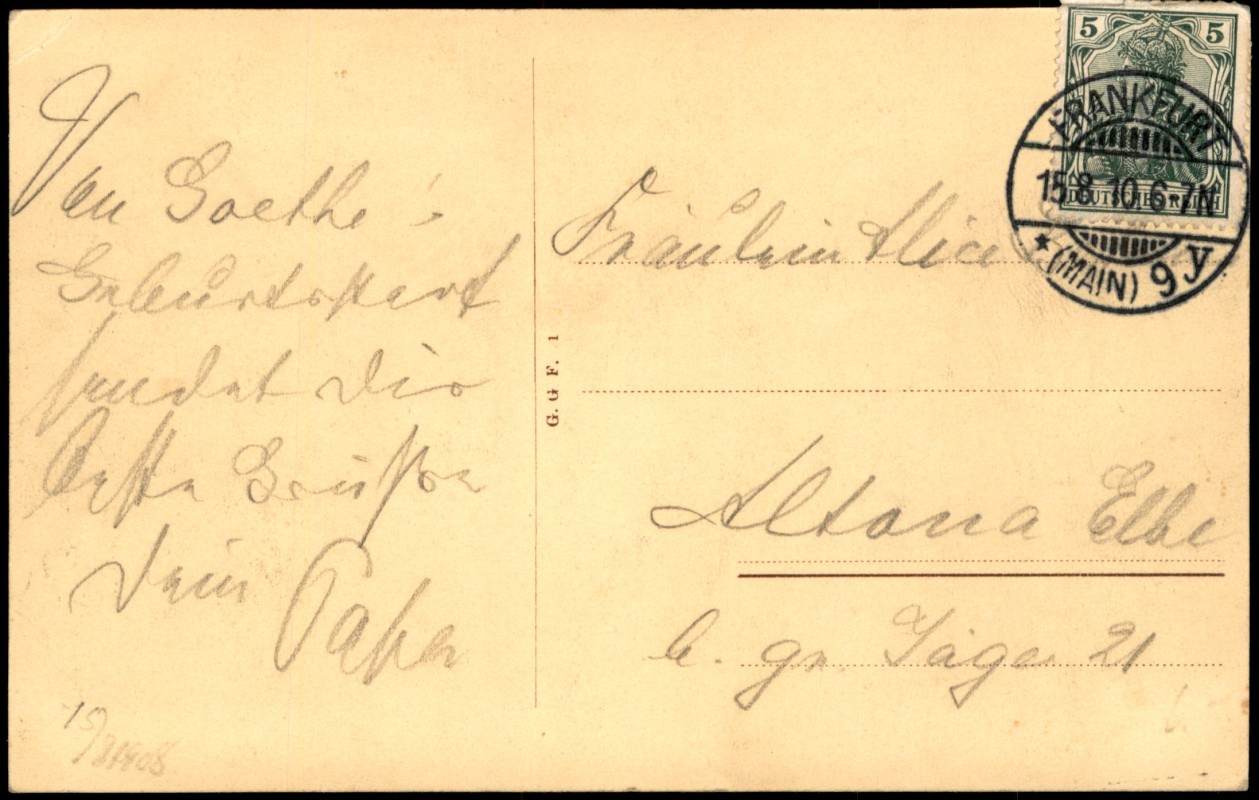 Von Goethe's
Geburtsstadt
sendet Dir
beste Grüße
Dein Papa
G. G F. 1
5 5
DEUTSCHES REICH
FRANKFURT
15.8.10.6-7N
* (MAIN) 9y
Fräulein Alice
Altona Elbe
b. gr. Jäger 21